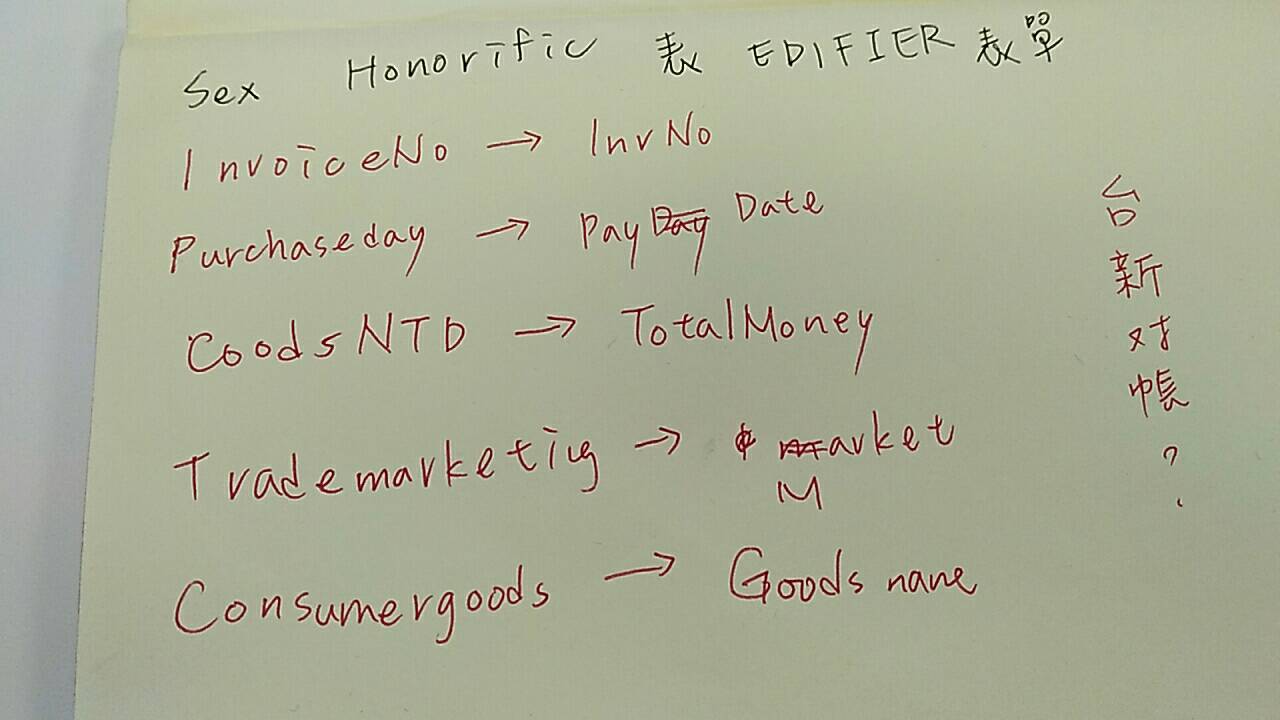 Sex Honorific 表 EDIFIER 表單
InvoiceNo → InvNo
Purchaseday → Pay Day Date
GoodsNTD → TotalMoney
Trademarketing → market
M
Consumergoods → Goods name
台新对帳?